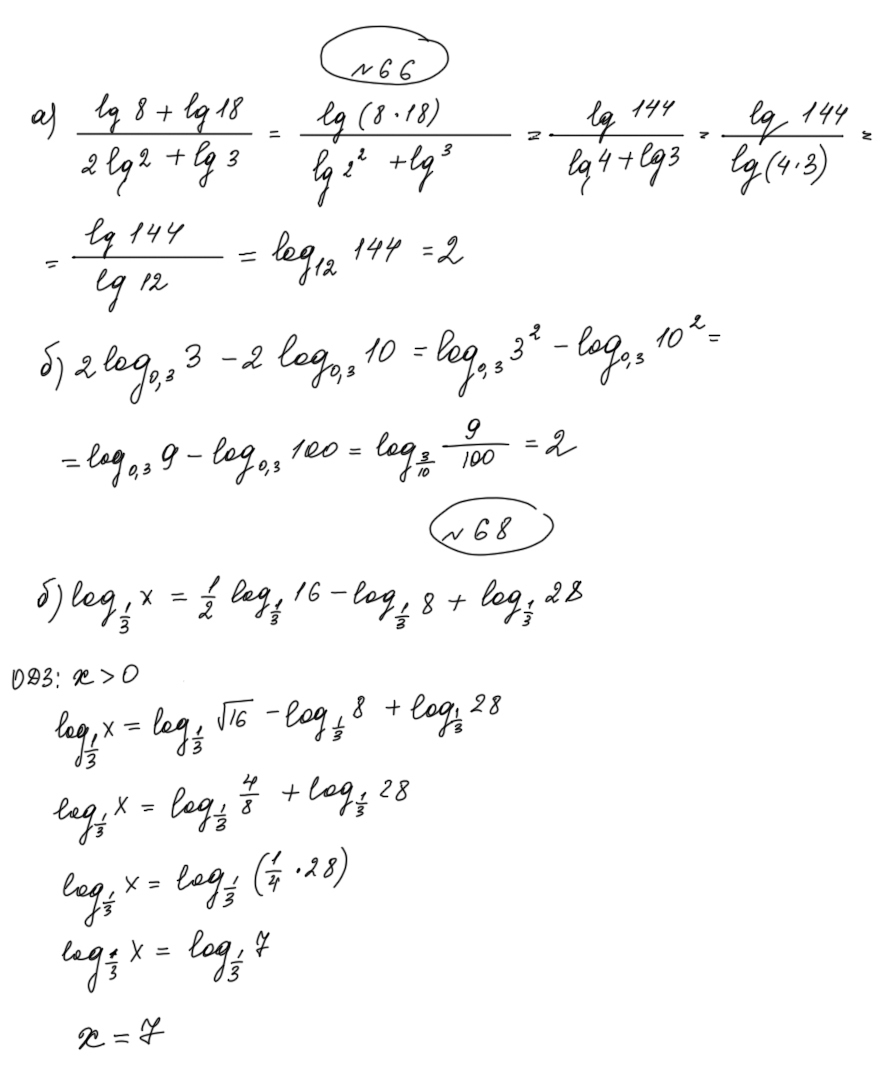 №66
а) (lg 8 + lg 18)/(2 lg 2 + lg 3) = (lg (8·18))/(lg 2² + lg ³) = (lg 144)/(lg 4 + lg 3) = (lg 144)/(lg (4·3)) =
= (lg 144)/(lg 12) = log₁₂ 144 = 2
б) 2 log₀,₃ 3 – 2 log₀,₃ 10 = log₀,₃ 3² – log₀,₃ 10² =
= log₀,₃ 9 – log₀,₃ 100 = log_(3/10) 9/100 = 2
№68
б) log_(1/3) x = 1/2 log_(1/3) 16 – log_(1/3) 8 + log_(1/3) 28
ОДЗ: x > 0
log_(1/3) x = log_(1/3) √16 – log_(1/3) 8 + log_(1/3) 28
log_(1/3) x = log_(1/3) 4/8 + log_(1/3) 28
log_(1/3) x = log_(1/3) (1/4 · 28)
log_(1/3) x = log_(1/3) 7
x = 7